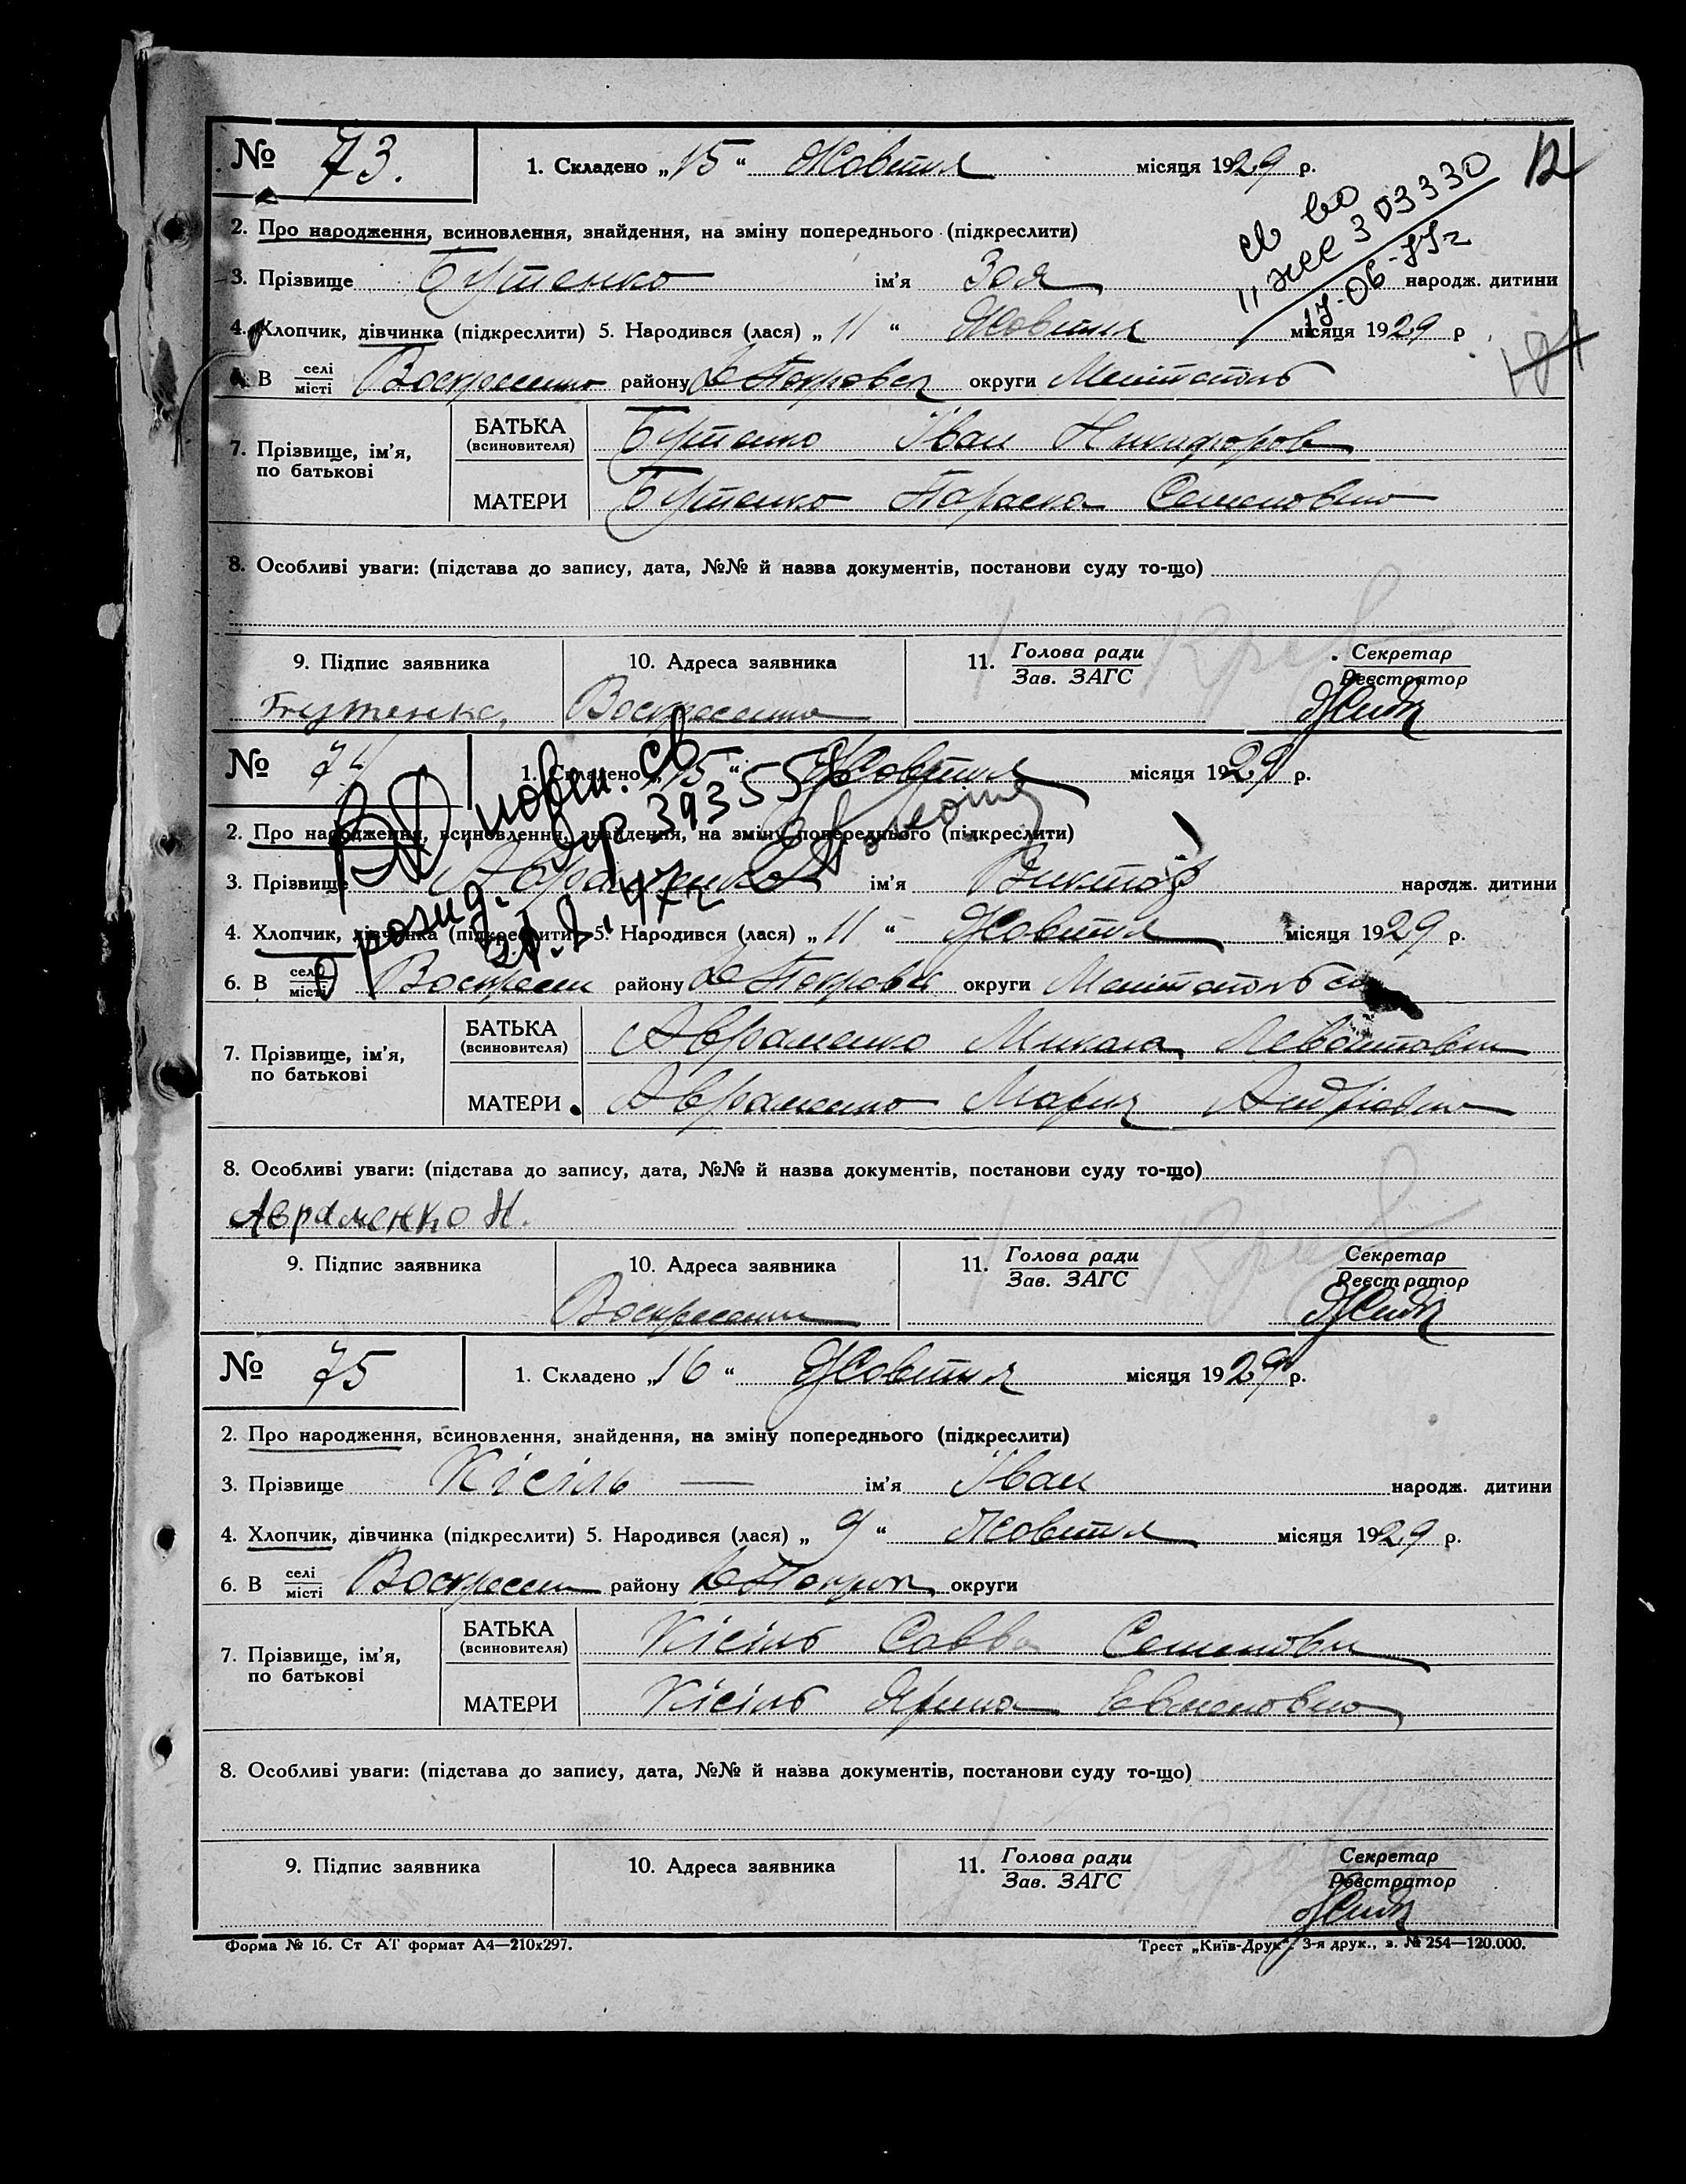 12
№ 73. 1. Складено „15“ Жовтня місяця 1929 р.
св во
303330
17-06-
2. Про народження, всиновлення, знайдення, на зміну попереднього (підкреслити)
3. Прізвище Бутенко ім'я Зоя народж. дитини
4. Хлопчик, дівчинка (підкреслити) 5. Народився (лася) „11“ Жовтня місяця 1929 р
6. В селі/місті району Покровск округи Мелітополь
7. Прізвище, ім'я, по батькові
БАТЬКА (всиновителя) Бутенко Іван Никифоров
МАТЕРИ Бутенко Параска Семеновно
8. Особливі уваги: (підстава до запису, дата, №№ й назва документів, постанови суду то-що)
9. Підпис заявника 10. Адреса заявника 11. Голова ради/Зав. ЗАГС Секретар/Реєстратор
Бутенко,
№ 74 1. Складено „15“ Жовтня місяця 1929 р.
повт. св
393558
2. Про народження, всиновлення, знайдення, на зміну попереднього (підкреслити)
3. Прізвище Авраменко ім'я Виктор народж. дитини
4. Хлопчик, дівчинка (підкреслити) 5. Народився (лася) „11“ Жовтня місяця 1929 р.
6. В селі/місті Воскресен району Покровск округи
7. Прізвище, ім'я, по батькові
БАТЬКА (всиновителя) Авраменко Микола
МАТЕРИ Авраменко Мария Андріовно
8. Особливі уваги: (підстава до запису, дата, №№ й назва документів, постанови суду то-що)
Авраменко Н.
9. Підпис заявника 10. Адреса заявника 11. Голова ради/Зав. ЗАГС Секретар/Реєстратор
№ 75 1. Складено „16“ Жовтня місяця 1929 р.
2. Про народження, всиновлення, знайдення, на зміну попереднього (підкреслити)
3. Прізвище Кісіль — ім'я Іван народж. дитини
4. Хлопчик, дівчинка (підкреслити) 5. Народився (лася) „9“ Жовтня місяця 1929 р.
6. В селі/місті Воскресен району округи
7. Прізвище, ім'я, по батькові
БАТЬКА (всиновителя) Кісіль Савва
МАТЕРИ Кісіль Ярина
8. Особливі уваги: (підстава до запису, дата, №№ й назва документів, постанови суду то-що)
9. Підпис заявника 10. Адреса заявника 11. Голова ради/Зав. ЗАГС Секретар/Реєстратор
Форма № 16. Ст АТ формат А4—210х297. Трест „Київ-Друк“. 3-я друк., з. № 254—120.000.